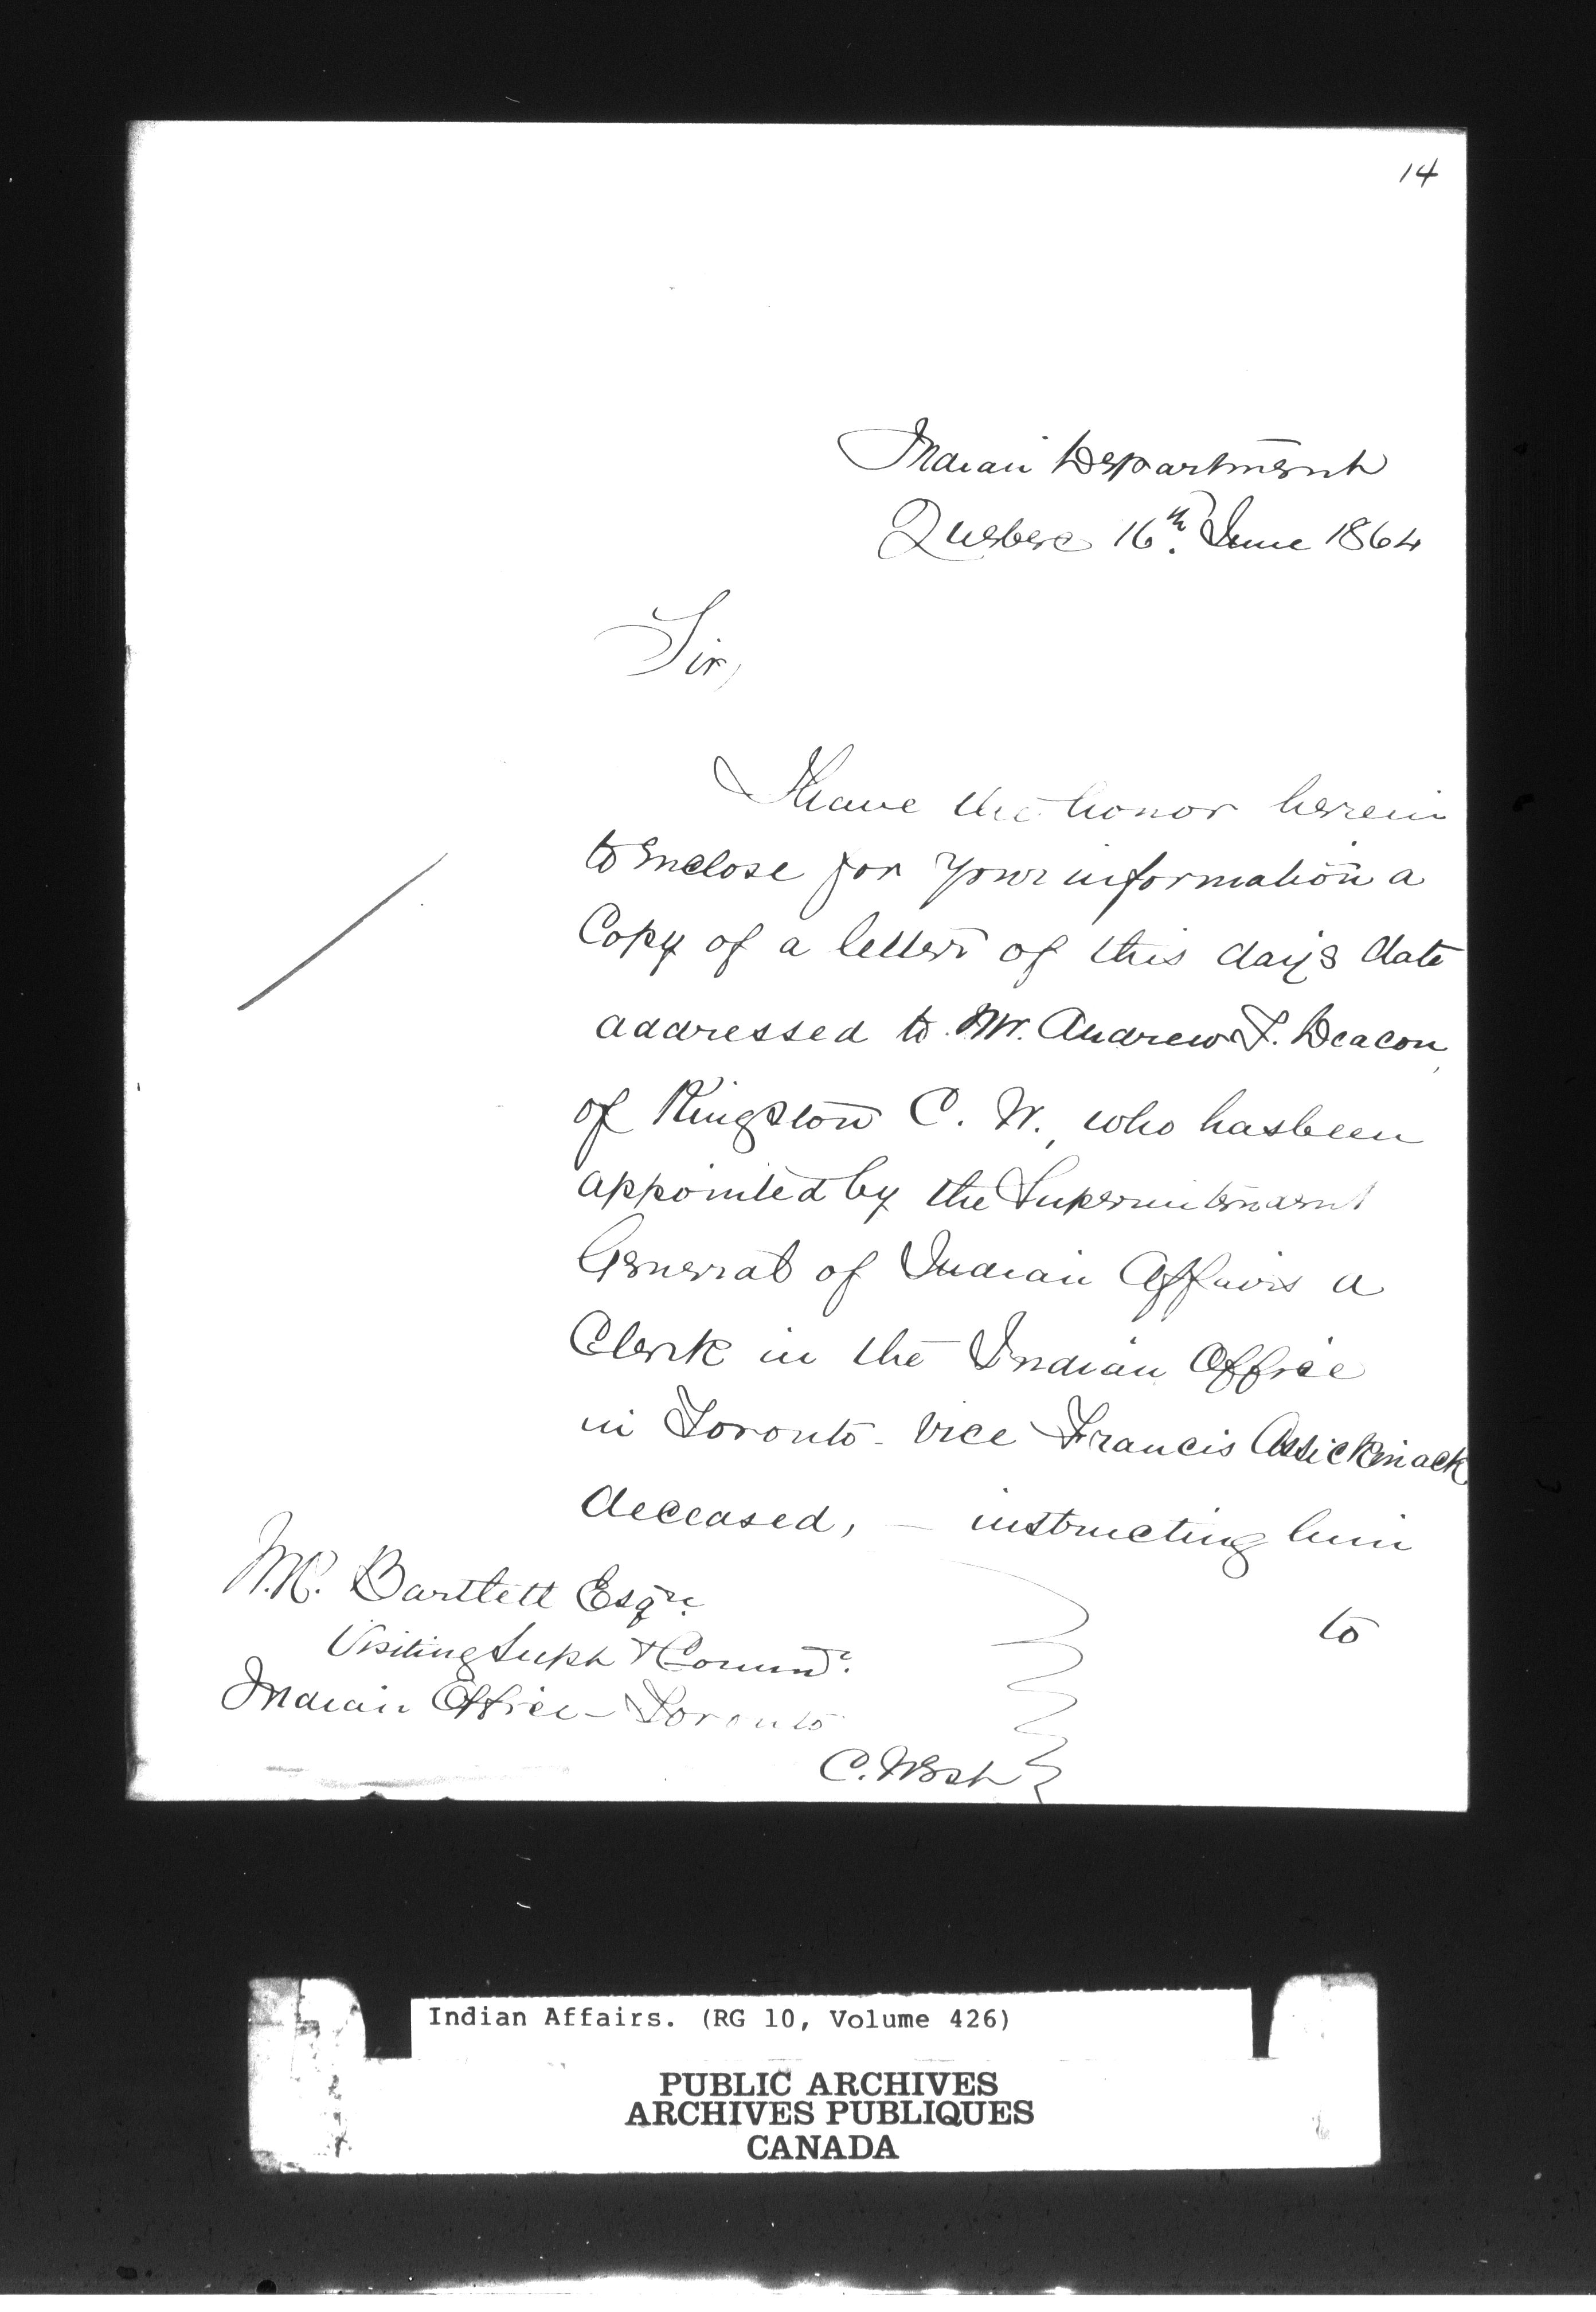 14
Indian Department
Quebec 16th. June 1864
Sir,
I have the honor herein
to enclose for your information a
Copy of a letter of this day's date
addressed to Mr. Andrew F. Deacon
of Kingston C. W., who has been
appointed by the Superintendent
General of Indian Affairs a
Clerk in the Indian Office
in Toronto - vice Francis Assickinack
deceased, — instructing him
to
W.R. Bartlett Esqre.
Visiting Supt & Commr.
Indian Office - Toronto
C. West
Indian Affairs. (RG 10, Volume 426)
PUBLIC ARCHIVES
ARCHIVES PUBLIQUES
CANADA